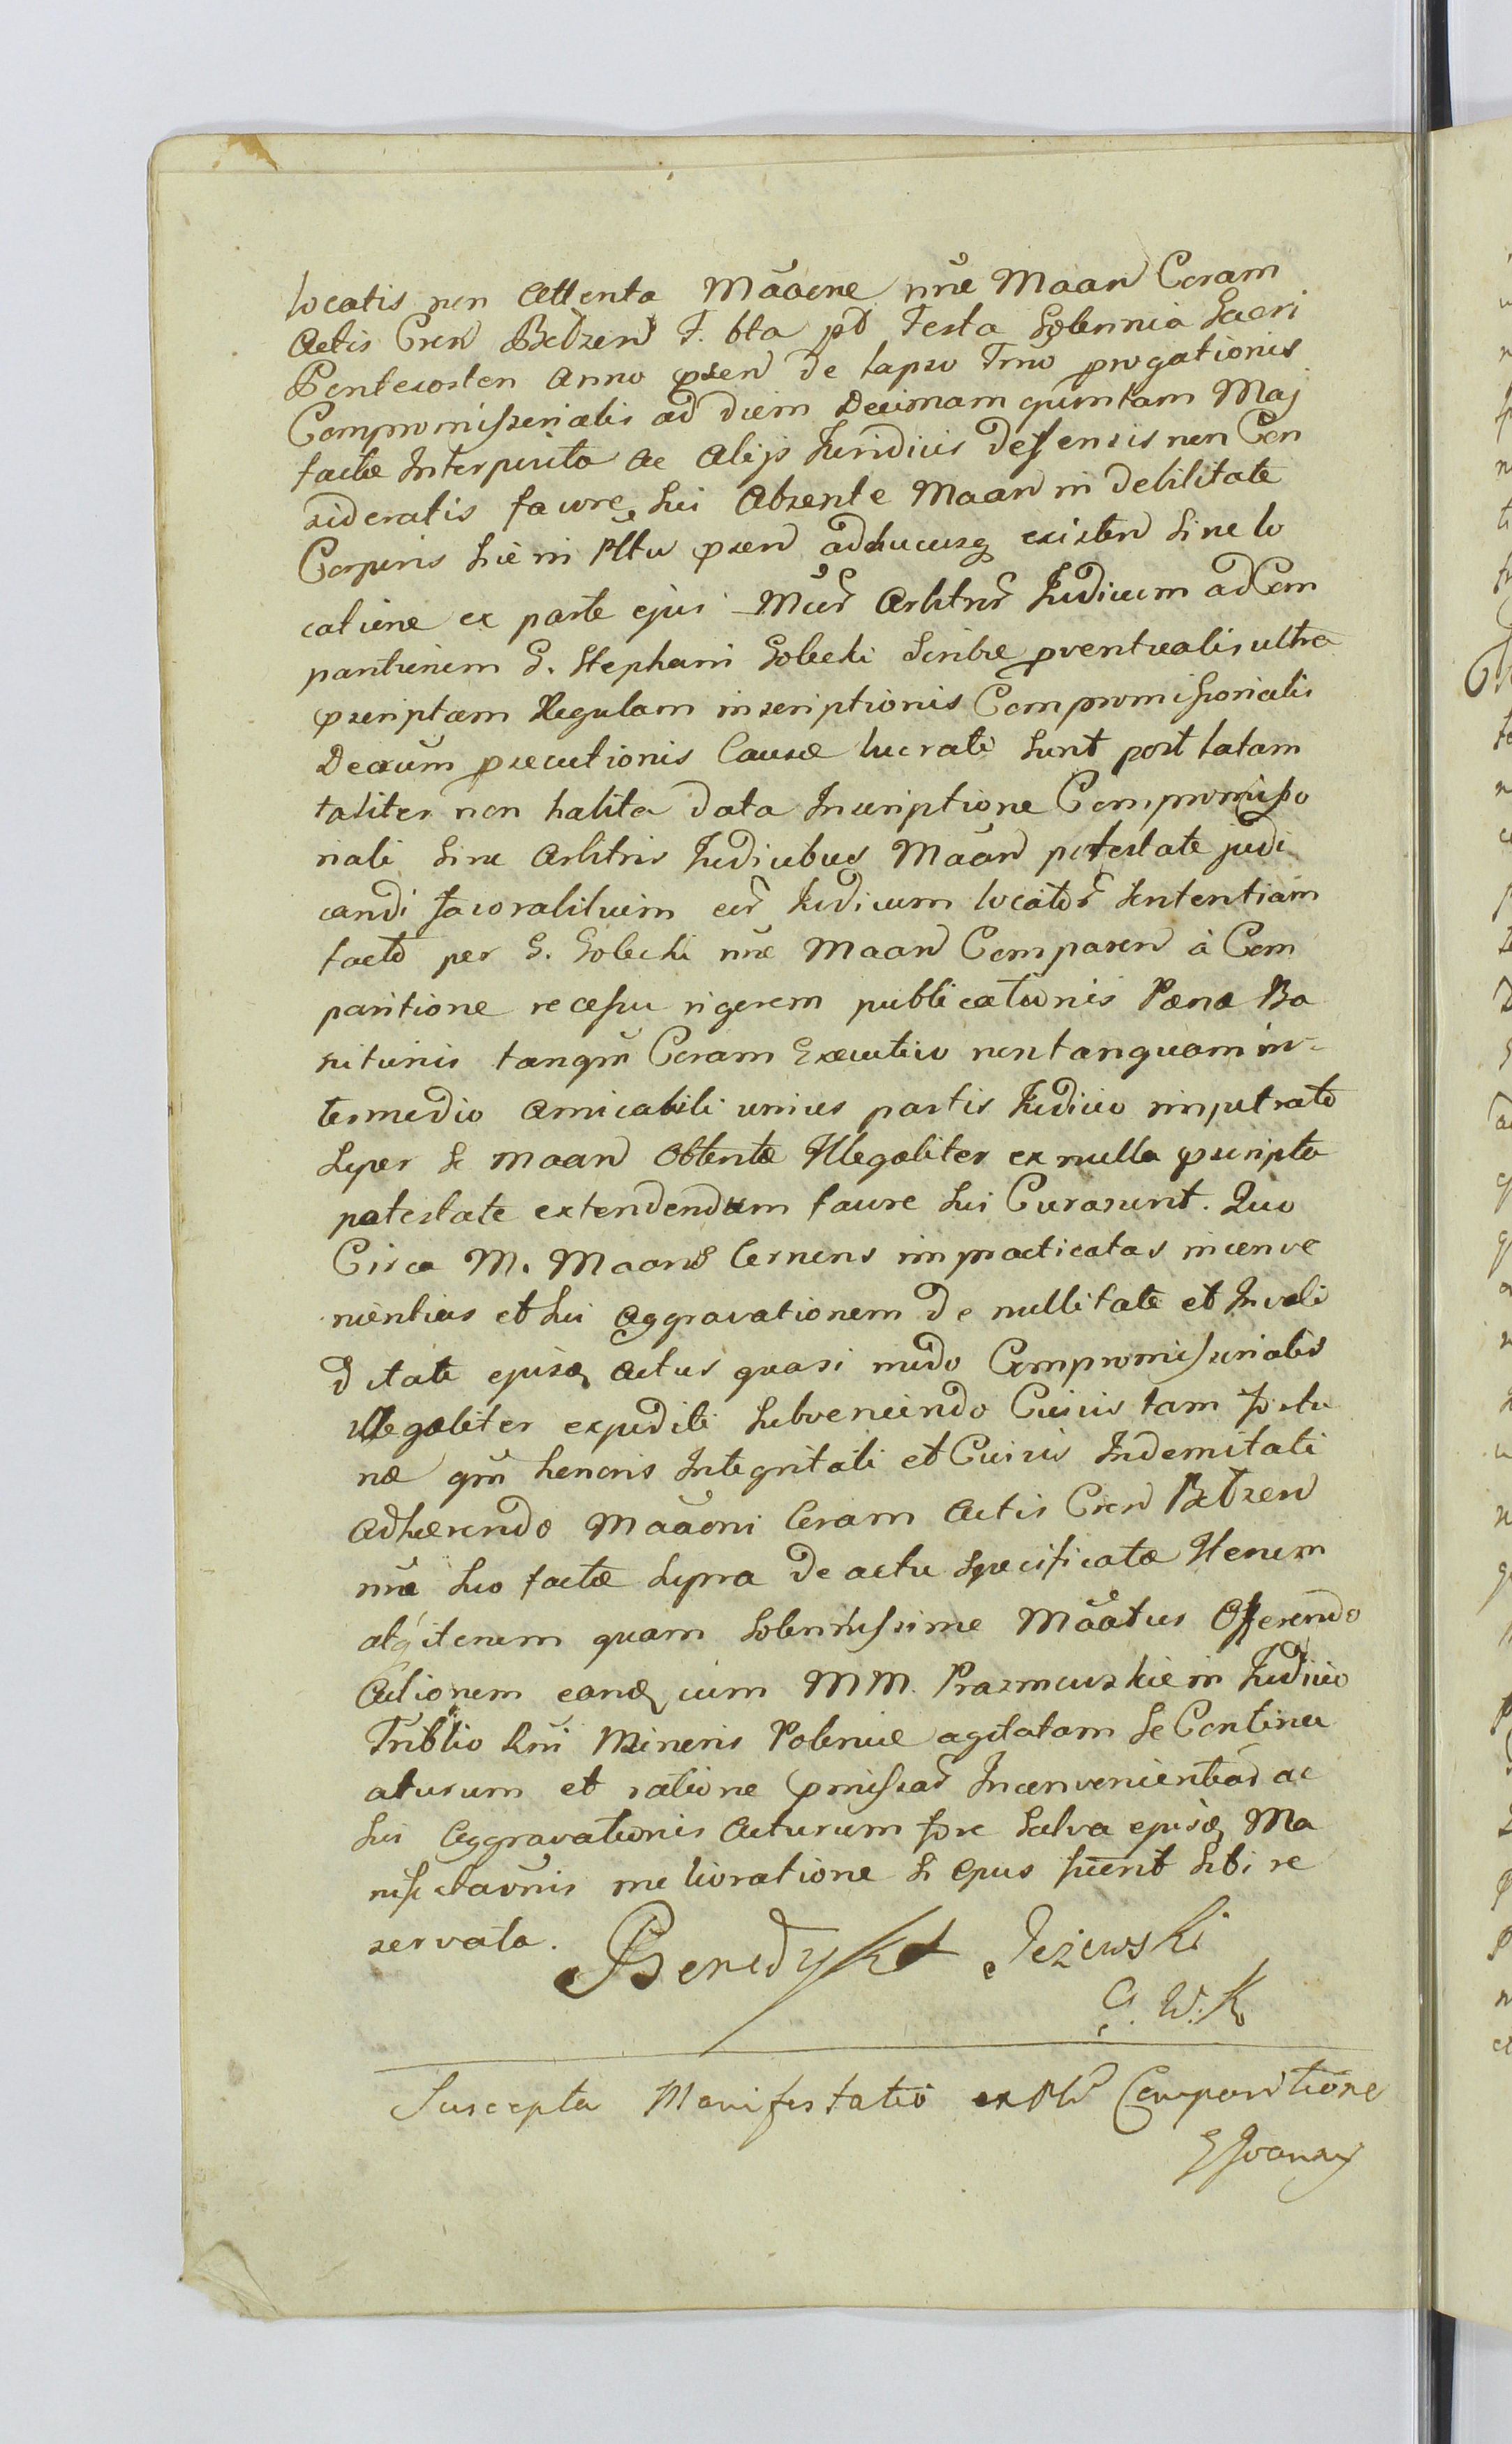 locatis non Attenta Mãaone nñe Maan Coram
Actis Cren Bełzen F. 6ta pt Festa Solennia Sacri
Pentecosten Anno prsen de lapso Tmo progationis
Compromissorialis ad diem Decimam quintam Maj
factæ Interposita ac Alijs Juridicis defensis non Con
sideratis favore sui Absente Maan in debilitate
Corporis hic in Pltu prsen adhucusq existen Sine lo
catione ex parte ejus Mcor Arbitror Judicum ad Com
paritionem G. Stephani Golecki Scribæ proventualis ultra
præscriptam Regulam inscriptionis Compromissorialis
Decreum prsecutionis Causæ lucrati sunt post latam
taliter non habita data Inscriptione Compromisso
riali sine Arbitris Judicibus Maan potestate judi
candi favorabiliorem eor Judicum locator Sententiam
facto per G. Golecki nñe Maan Comparen à Com
paritione recessu rigorem publicationis Pænæ Ba
nitionis tanqm Coram Executivo non tanquam in-
termedio amicabili unius partis Judicio impetrato
super se Maan Obtentæ Illegaliter ex nulla præscripta
potestate extendendum favore sui Curarunt. Quo
Circa M. Maans Cernens impracticatas inconve
nientias et sui Aggravationem de nullitate et Invali
ditate ejusq Actus quasi modo Compromissorialis
illegaliter expediti Subveniendo Cuivis tam fortu
næ qm honoris Integritati et Cuivis Indemnitati
Adhærendo Mãaoni Coram Actis Cren Bełzen
nñe suo factæ supra de actu specificatæ Iterum
atq iterum quam Solennissime Mãatus Offerendo
Actionem eandq cum MM. Prazmowskie in Judicio
Tribtio Rni Minoris Poloniæ agitatam Se Continu
aturum et ratione præmissar Inconvenientiar ac
sui Aggravationis Acturum fore Salva ejusq Ma
nifestaõnis melioratione si Opus fuerit Sibi re
servata.
Benedykt Jezewski
C. W. K.
Suscepta Manifestatio ex Pltr Comparitione